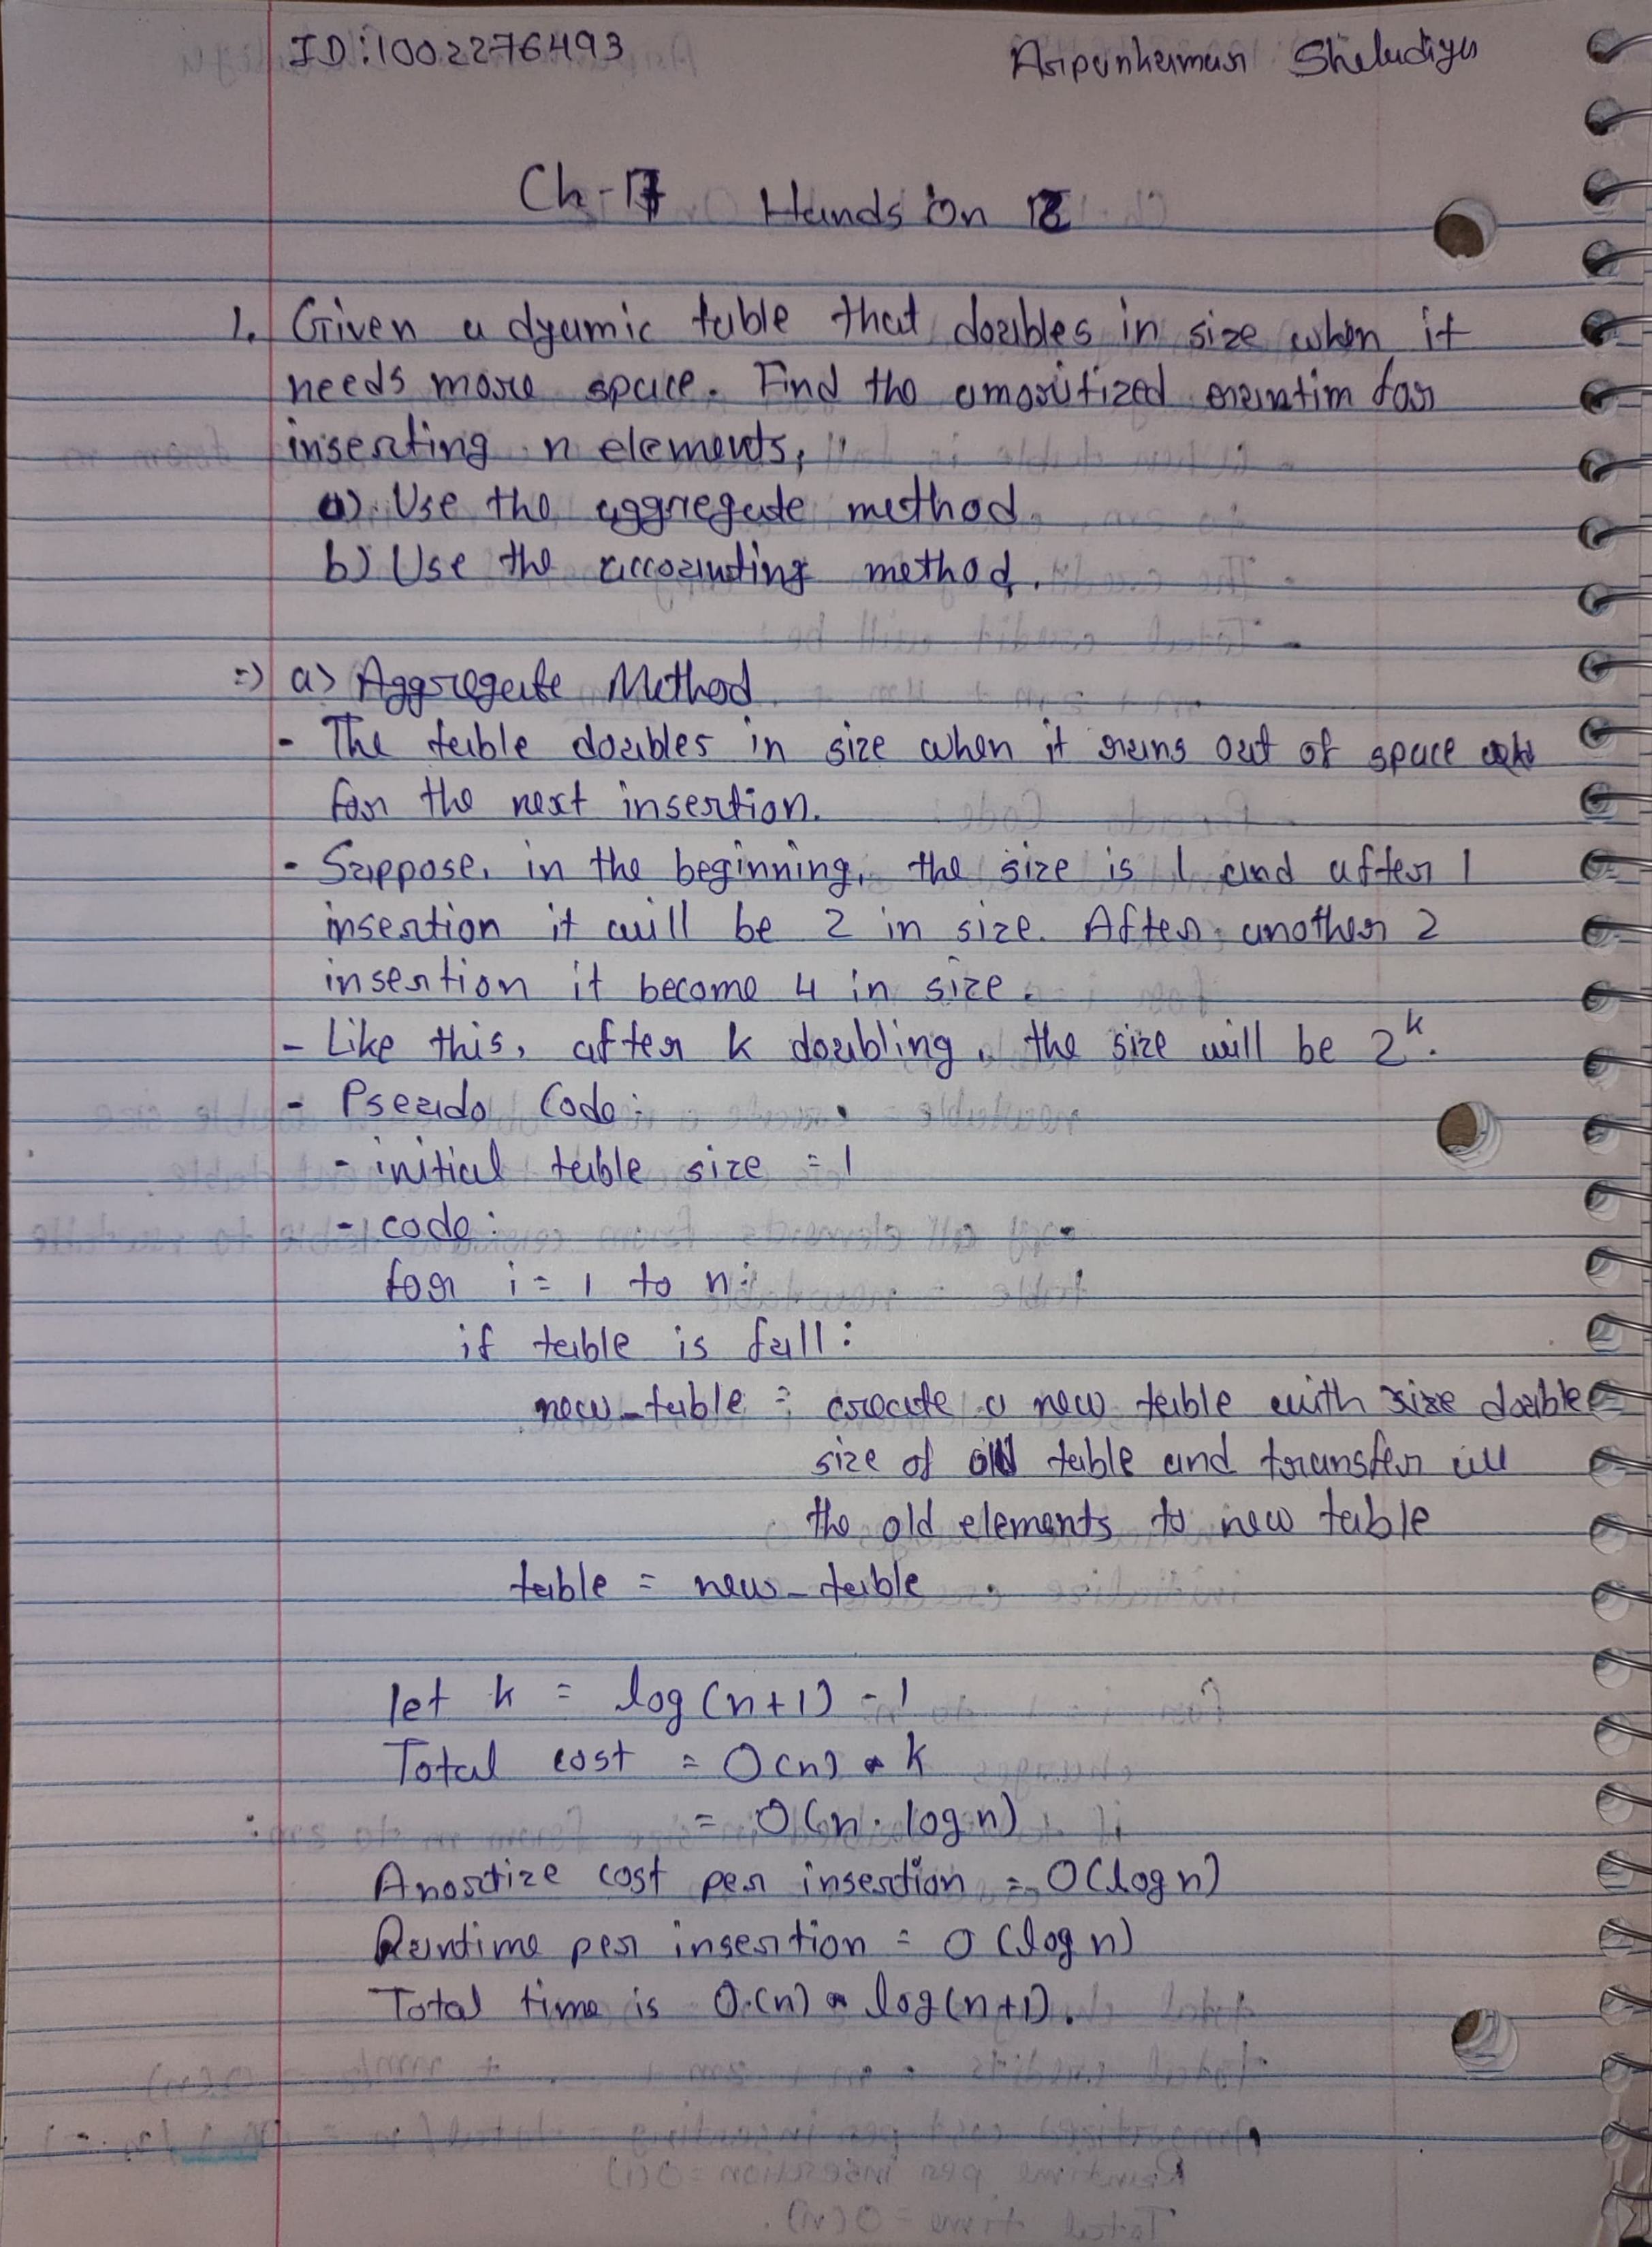 ID:1002276493 Aripunkumar Sheludiya
Ch-17 Hands On 12
1. Given a dyamic table that doubles in size when it
needs more space. Find the amoritized runtim for
inserting n elements,
a) Use the aggregate method
b) Use the accounting method.
=> a) Aggregate Method
- The table doubles in size when it runs out of space
for the next insertion.
- Suppose, in the beginning, the size is 1 and after 1
insertion it will be 2 in size. After another 2
insertion it become 4 in size.
- Like this, after k doubling, the size will be 2^k.
- Pseudo Code:
- initial table size = 1
- code:
for i = 1 to n:
if table is full:
new_table = create a new table with size double
size of old table and transfer all
the old elements to new table
table = new_table
let k = log(n+1) - 1
Total cost = O(n) * k
= O(n · log n)
Amortize cost per insertion = O(log n)
Runtime per insertion = O(log n)
Total time is O(n) * log(n+1).